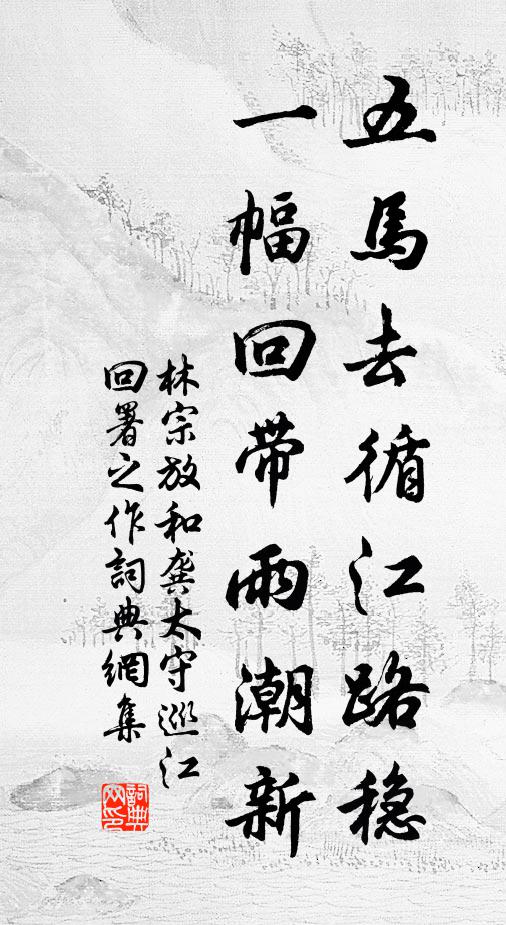 五馬去循江路穏
一幅回帶雨潮新
林宗放和龚太守巡江
回署之作詞典網集
詞典网印